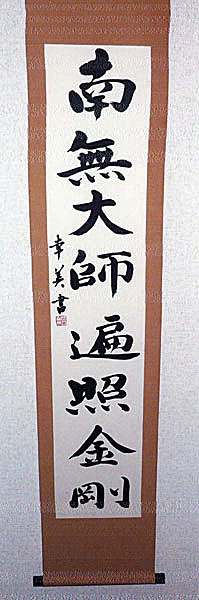 南無大師遍照金剛
幸美書